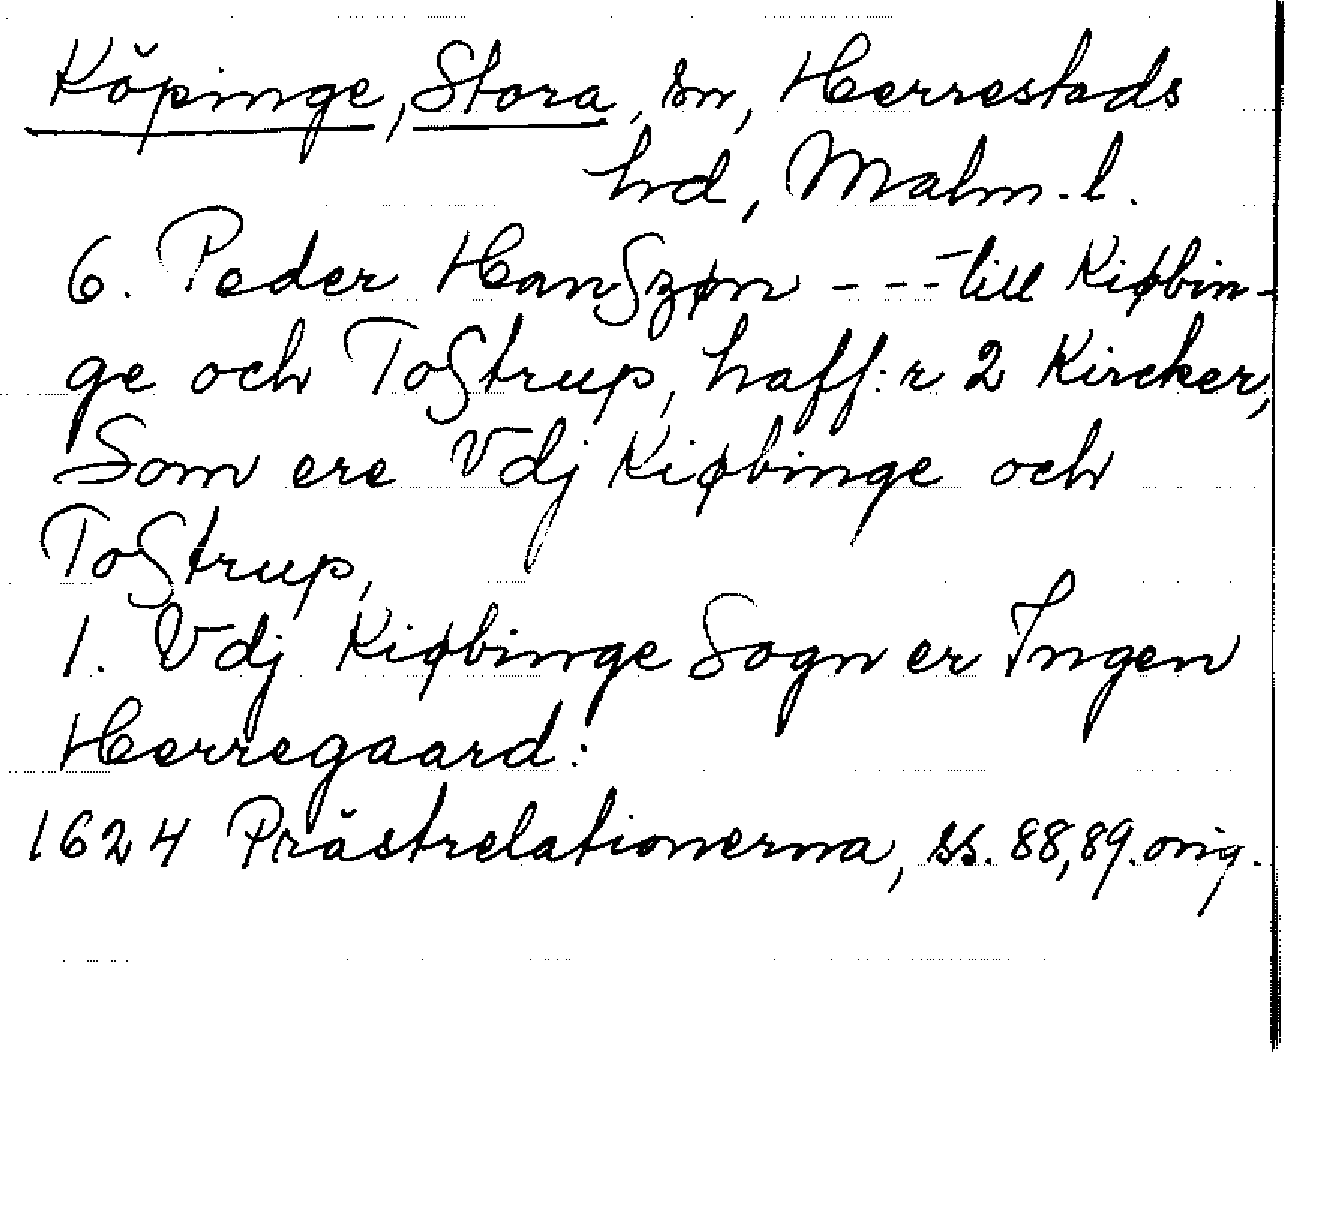 Köpinge, Stora, sn, Herrestads
hd, Malm.l.
6. Peder HanSzøn ---till Kiøbin-
ge och ToStrup, haff:r 2 Kircker,
Som ere Vdj Kiøbinge och
ToStrup,
1. Vdj Kiøbinge Sogn er Ingen
Herregaard:
1624 Prästrelationerna, ss. 88,89.orig.